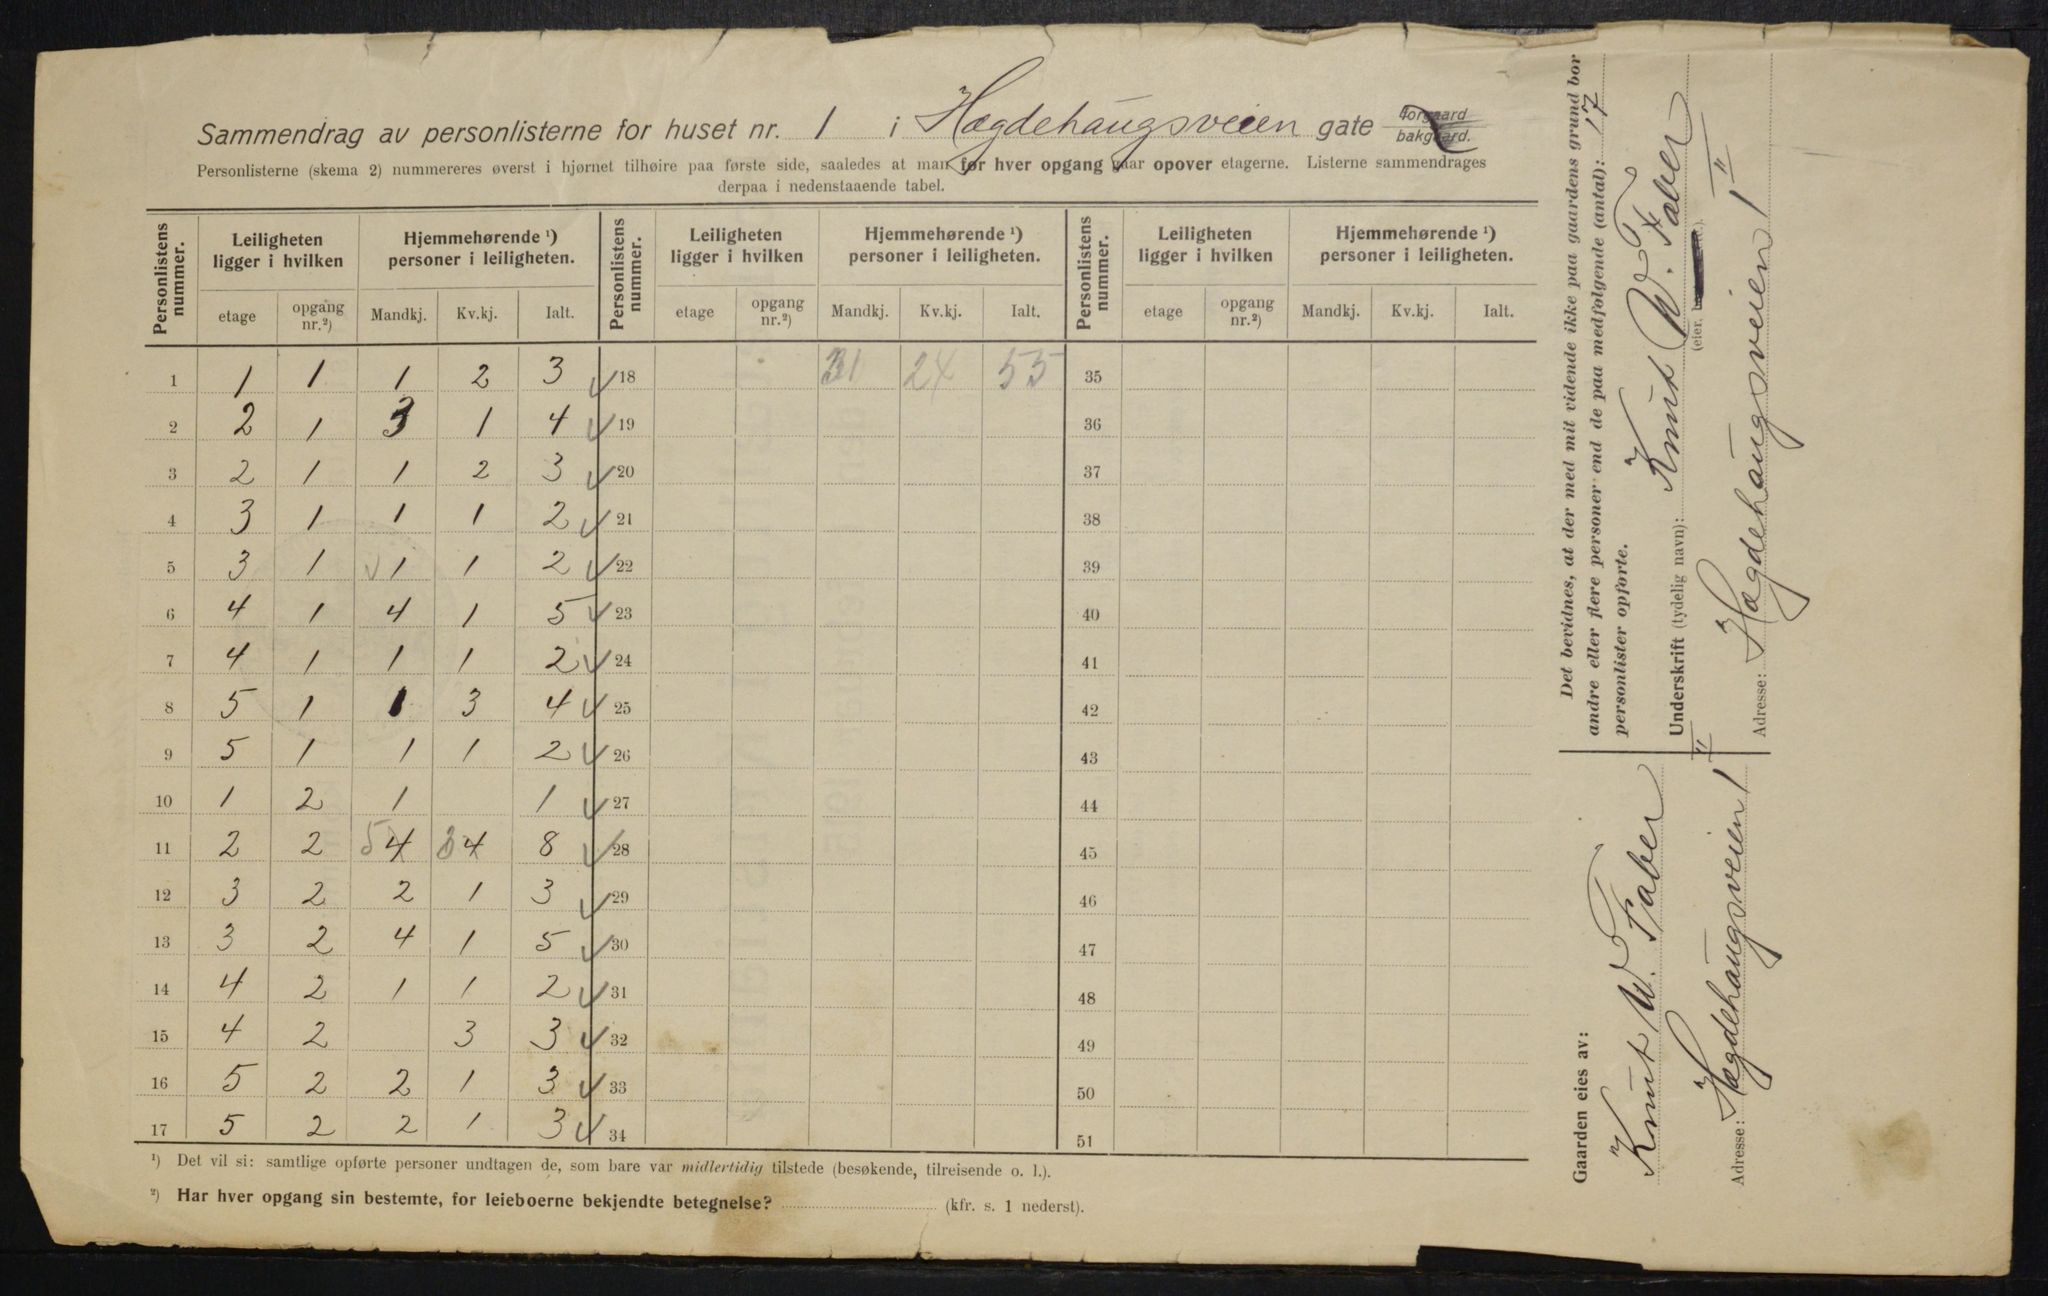 Sammendrag av personlisterne for huset nr. 1 i Hægdehaugsveien gate forgaard bakgaard.
Personlisterne (skema 2) nummereres øverst i hjørnet tilhøire paa første side, saaledes at man for hver opgang gaar opover etagerne. Listerne sammendrages
derpaa i nedenstaaende tabel.
Personlistens nummer. | Leiligheten ligger i hvilken | Hjemmehørende ¹) personer i leiligheten. | Personlistens nummer. | Leiligheten ligger i hvilken | Hjemmehørende ¹) personer i leiligheten. | Personlistens nummer. | Leiligheten ligger i hvilken | Hjemmehørende ¹) personer i leiligheten.
etage | opgang nr.²) | Mandkj. | Kv.kj. | Ialt. | etage | opgang nr.²) | Mandkj. | Kv.kj. | Ialt. | etage | opgang nr.²) | Mandkj. | Kv.kj. | Ialt.
1 | 1 | 1 | 1 | 2 | 3 ✓ | 18 | | | 31 | 24 | 55 | 35
2 | 2 | 1 | 3 | 1 | 4 ✓ | 19 | 36
3 | 2 | 1 | 1 | 2 | 3 ✓ | 20 | 37
4 | 3 | 1 | 1 | 1 | 2 ✓ | 21 | 38
5 | 3 | 1 | ✓ 1 | 1 | 2 ✓ | 22 | 39
6 | 4 | 1 | 4 | 1 | 5 ✓ | 23 | 40
7 | 4 | 1 | 1 | 1 | 2 ✓ | 24 | 41
8 | 5 | 1 | 1 | 3 | 4 ✓ | 25 | 42
9 | 5 | 1 | 1 | 1 | 2 ✓ | 26 | 43
10 | 1 | 2 | 1 | | 1 ✓ | 27 | 44
11 | 2 | 2 | 5 4 | 3 4 | 8 ✓ | 28 | 45
12 | 3 | 2 | 2 | 1 | 3 ✓ | 29 | 46
13 | 3 | 2 | 4 | 1 | 5 ✓ | 30 | 47
14 | 4 | 2 | 1 | 1 | 2 ✓ | 31 | 48
15 | 4 | 2 | | 3 | 3 ✓ | 32 | 49
16 | 5 | 2 | 2 | 1 | 3 ✓ | 33 | 50
17 | 5 | 2 | 2 | 1 | 3 ✓ | 34 | 51
¹) Det vil si: samtlige opførte personer undtagen de, som bare var midlertidig tilstede (besøkende, tilreisende o. l.).
²) Har hver opgang sin bestemte, for leieboerne bekjendte betegnelse? (kfr. s. 1 nederst).
Det bevidnes, at der med mit vidende ikke paa gaardens grund bor
andre eller flere personer end de paa medfølgende (antal): 17
personlister opførte.
Underskrift (tydelig navn): Knut W. Faber
(eier,
Adresse: Hægdehaugsveien 1 II
Gaarden eies av:
Knut W. Faber
Adresse: Hægdehaugsveien 1 II